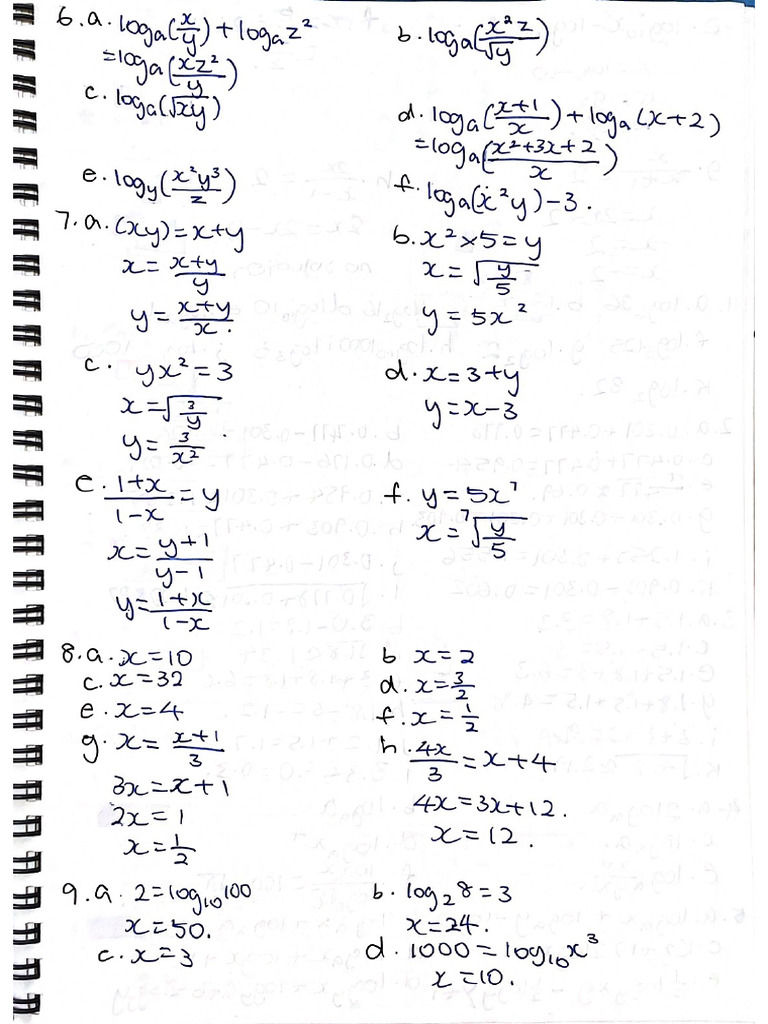 6. a. logₐ(x/y) + logₐz²
= logₐ(xz²/y)
b. logₐ(x²z/√y)
c. logₐ(√xy)
d. logₐ(x+1/x) + logₐ(x+2)
= logₐ(x²+3x+2/x)
e. log_y(x²y³/z)
f. logₐ(x²y) – 3.
7. a. (xy) = x+y
x = x+y/y
y = x+y/x.
b. x² × 5 = y
x = √(y/5)
y = 5x²
c. yx² = 3
x = √(3/y)
y = 3/x²
d. x = 3+y
y = x–3
e. 1+x/1–x = y
x = y+1/y–1
y = 1+x/1–x
f. y = 5x⁷
x = ⁷√(y/5)
8. a. x = 10
b x = 2
c. x = 32
d. x = 3/2
e. x = 4
f. x = 1/2
g. x = x+1/3
3x = x+1
2x = 1
x = 1/2
h. 4x/3 = x+4
4x = 3x+12.
x = 12.
9. a. 2 = log₁₀100
x = 50.
b. log₂8 = 3
x = 24.
c. x = 3
d. 1000 = log₁₀x³
x = 10.